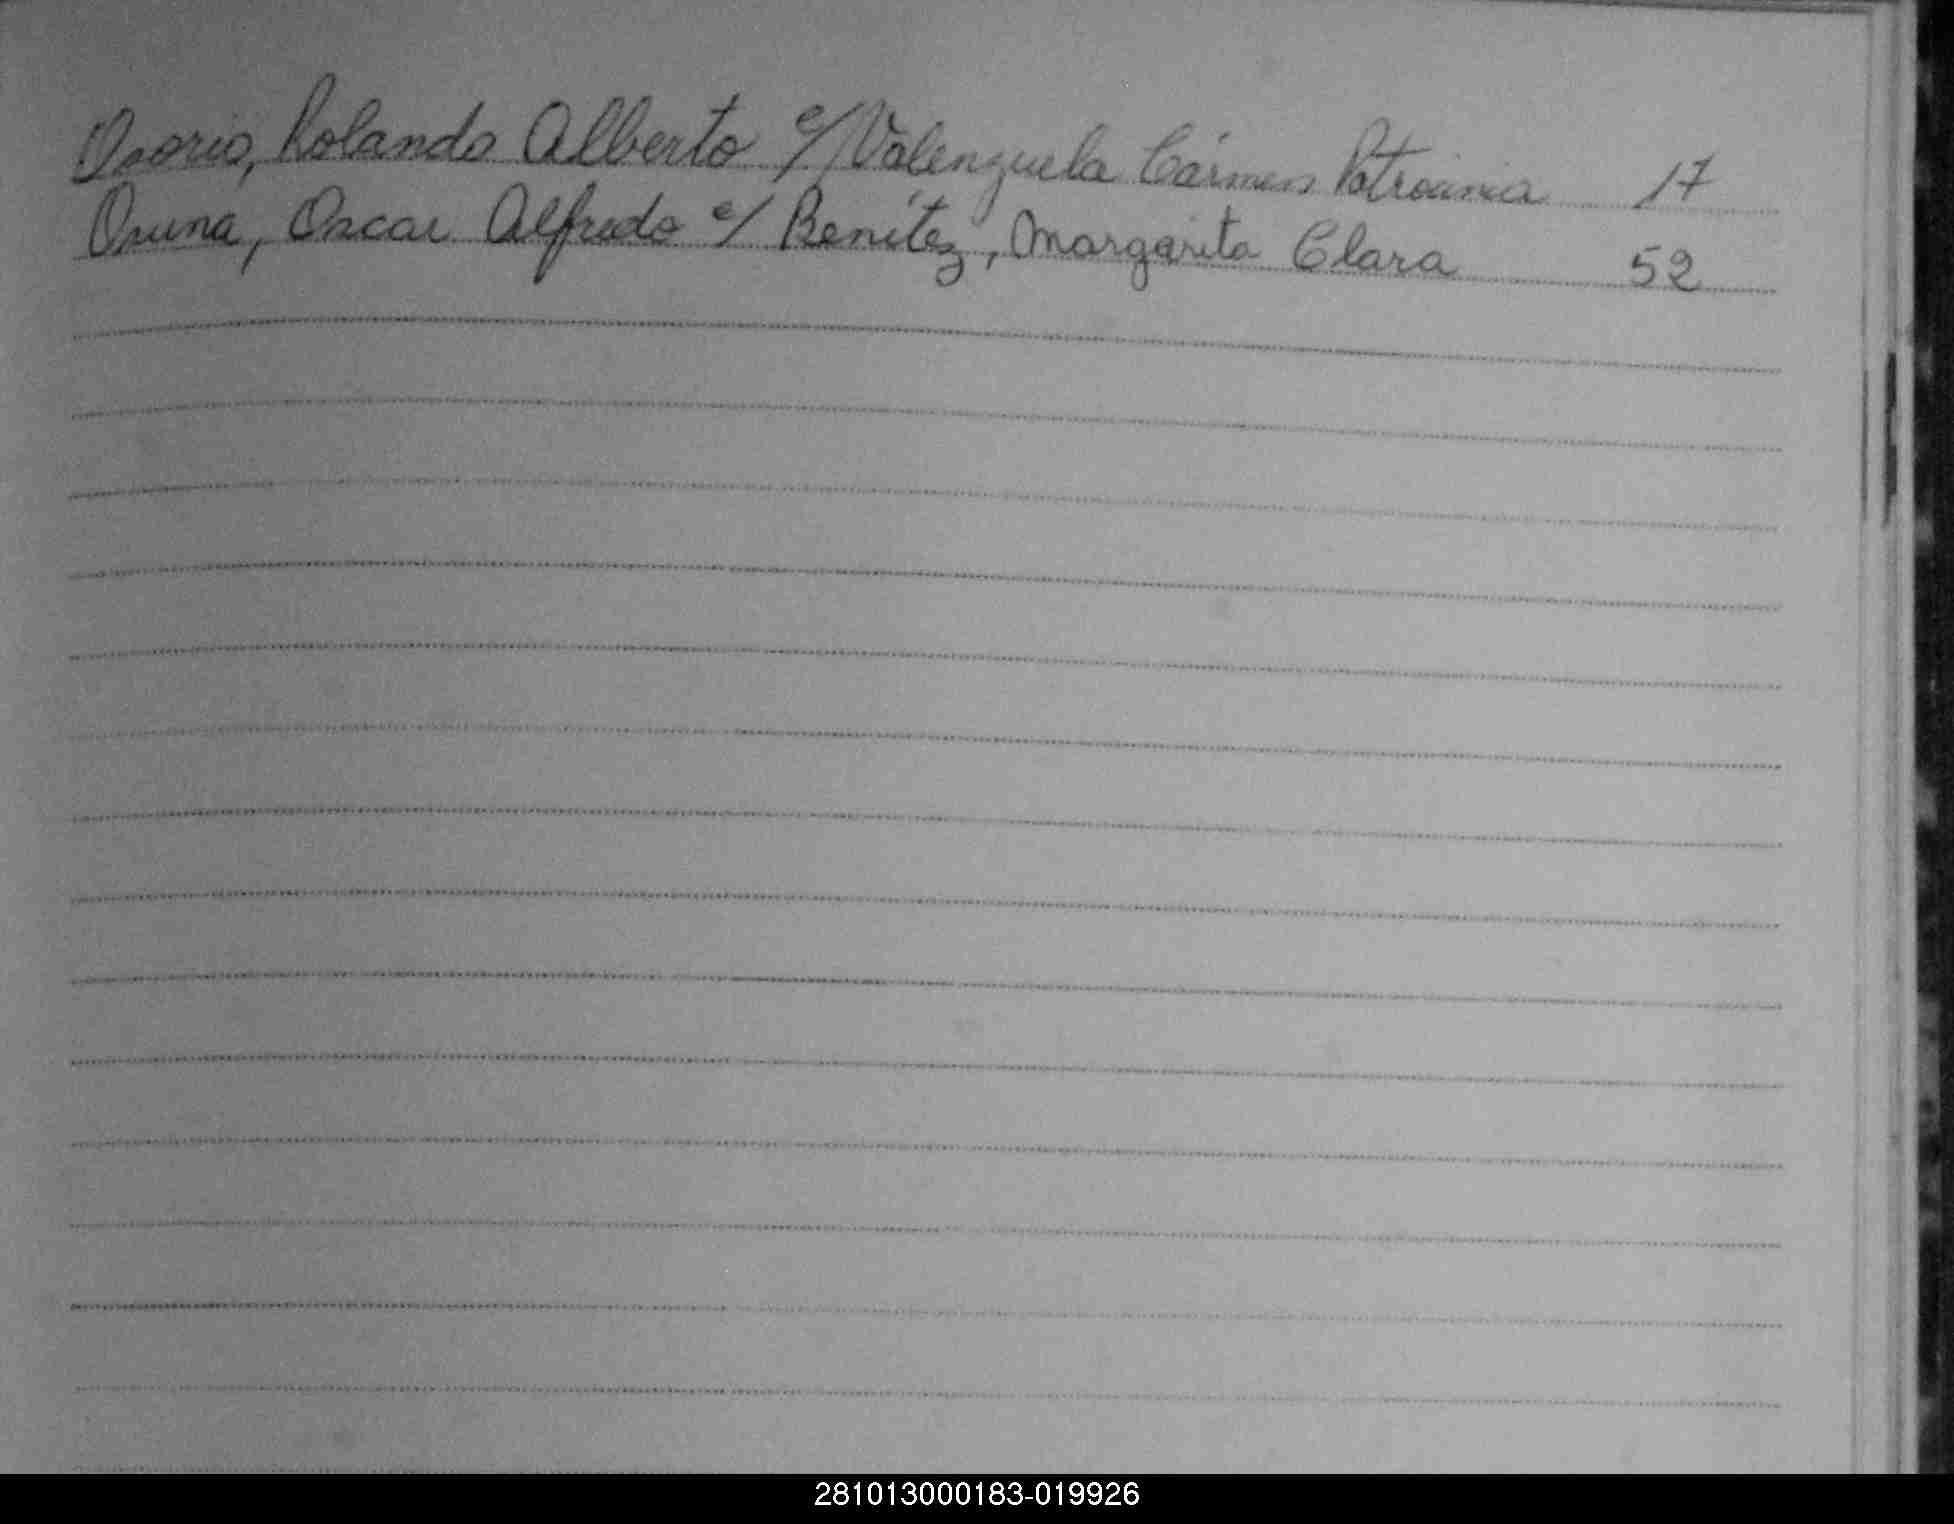 Osorio, Rolando Alberto c/ Valenzuela Cármen Patrocinia 17
Osuna, Oscar Alfredo c/ Benítez, Margarita Clara 52
281013000183-019926